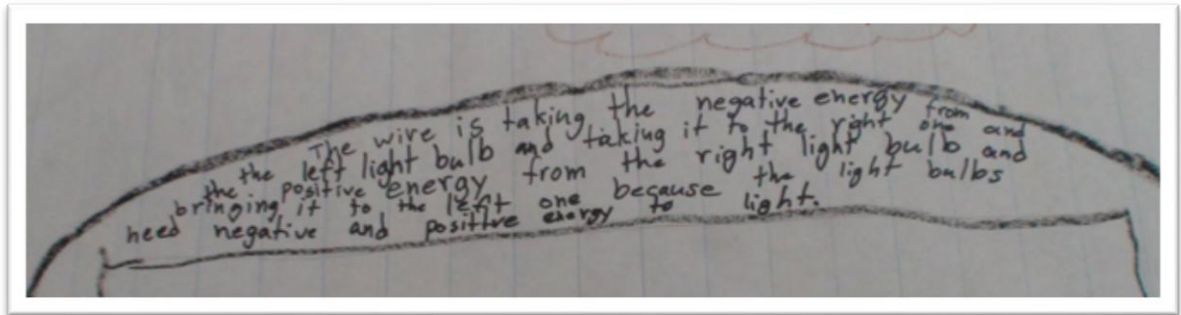 The wire is taking the negative energy from
the left light bulb and taking it to the right one and
the positive energy from the right light bulb and
bringing it to the left one because the light bulbs
need negative and positive energy to light.